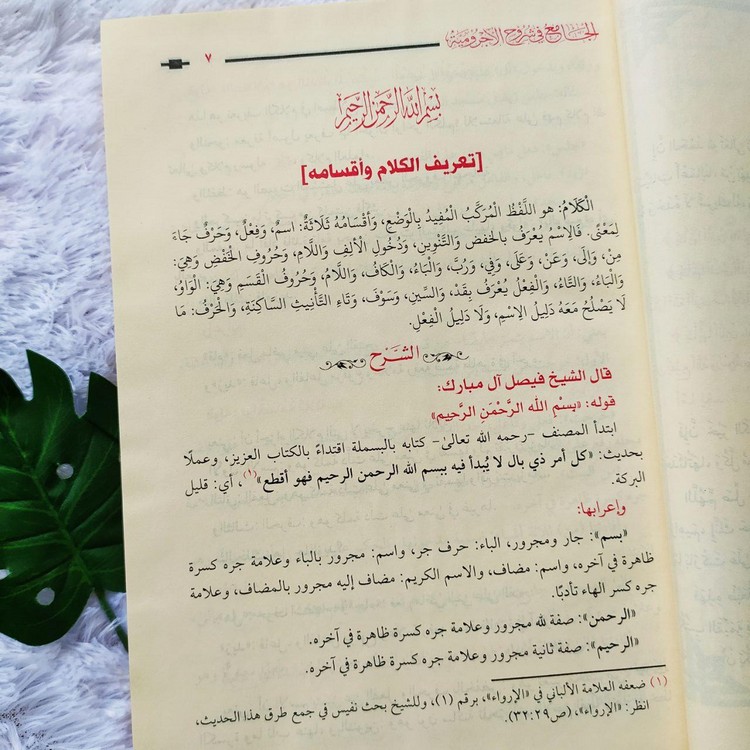 الجامع في شروح الآجرومية
٧
بسم الله الرحمن الرحيم
[تعريف الكلام وأقسامه]
الْكَلَامُ: هو اللَّفْظُ الْمُرَكَّبُ الْمُفِيدُ بِالْوَضْعِ، وَأَقْسَامُهُ ثَلَاثَةٌ: اسمٌ، وَفِعْلٌ، وَحَرْفٌ جَاءَ
لِمَعْنًى. فَالِاسْمُ يُعْرَفُ بالخفض وَالتَّنْوِينِ، وَدُخُولِ الْأَلِفِ وَاللَّامِ، وَحُرُوفِ الْخَفْضِ وَهِيَ:
مِنْ، وَإِلَى، وَعَنْ، وَعَلَى، وَفِي، وَرُبَّ، وَالْبَاءُ، وَالْكَافُ، وَاللَّامُ، وَحُرُوفُ الْقَسَمِ وَهِيَ: الْوَاوُ،
وَالْبَاءُ، وَالتَّاءُ، وَالْفِعْلُ يُعْرَفُ بِقَدْ، وَالسِّينِ، وَسَوْفَ، وَتَاءِ التَّأْنِيثِ السَّاكِنَةِ، وَالْحَرْفُ: مَا
لَا يَصْلُحُ مَعَهُ دَلِيلُ الِاسْمِ، وَلَا دَلِيلُ الْفِعْلِ.
الشَّرْح
قال الشيخ فيصل آل مبارك:
قوله: «بِسْمِ الله الرَّحْمَنِ الرَّحِيمِ»
ابتدأ المصنف -رحمه الله تعالى- كتابه بالبسملة اقتداءً بالكتاب العزيز، وعملًا
بحديث: «كل أمر ذي بال لا يُبدأ فيه ببسم الله الرحمن الرحيم فهو أقطع»(١)، أي: قليل
البركة.
وإعرابها:
«بسم»: جار ومجرور، الباء: حرف جر، واسم: مجرور بالباء وعلامة جره كسرة
ظاهرة في آخره، واسم: مضاف، والاسم الكريم: مضاف إليه مجرور بالمضاف، وعلامة
جره كسر الهاء تأدبًا.
«الرحمن»: صفة لله مجرور وعلامة جره كسرة ظاهرة في آخره.
«الرحيم»: صفة ثانية مجرور وعلامة جره كسرة ظاهرة في آخره.
(١) ضعفه العلامة الألباني في «الإرواء»، برقم (١)، وللشيخ بحث نفيس في جمع طرق هذا الحديث،
انظر: «الإرواء»، (ص٢٩:٣٢).